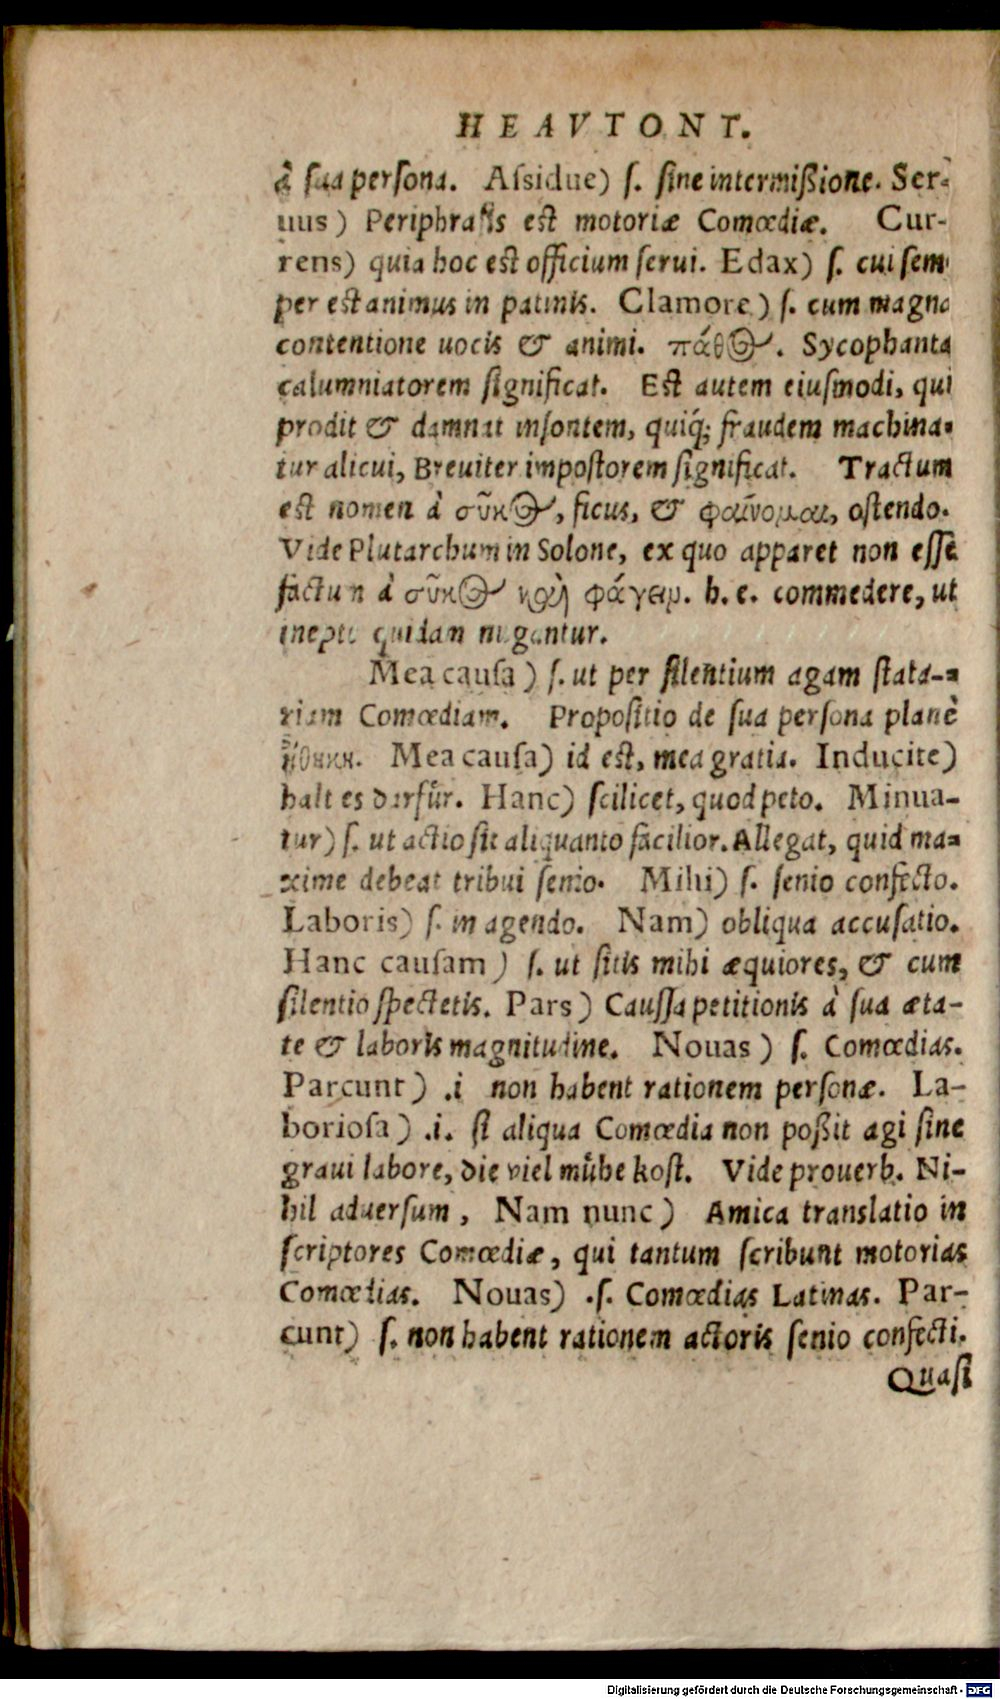 HEAVTONT.
à sua persona. Assidue) s. sine intermißione. Ser-
uus) Periphrasis est motoriæ Comœdiæ. Cur-
rens) quia hoc est officium serui. Edax) s. cui sem
per est animus in patinis. Clamore) s. cum magna
contentione uocis & animi. πάθος. Sycophanta
calumniatorem significat. Est autem eiusmodi, qui
prodit & damnat insontem, quiq́; fraudem machina-
tur alicui, Breuiter impostorem significat. Tractum
est nomen à σῦκος, ficus, & φαίνομαι, ostendo.
Vide Plutarchum in Solone, ex quo apparet non esse
factum à σῦκος καὶ φάγειν. h. e. commedere, ut
inepti quidam nugantur.
Mea causa) s. ut per silentium agam stata-
riam Comœdiam. Propositio de sua persona planè
ἠθική. Mea causa) id est, mea gratia. Inducite)
halt es darfür. Hanc) scilicet, quod peto. Minua-
tur) s. ut actio sit aliquanto facilior. Allegat, quid ma-
xime debeat tribui senio. Mihi) s. senio confecto.
Laboris) s. in agendo. Nam) obliqua accusatio.
Hanc causam) s. ut sitis mihi æquiores, & cum
silentio spectetis. Pars) Caussa petitionis à sua æta-
te & laboris magnitudine. Nouas) s. Comœdias.
Parcunt) .i non habent rationem personæ. La-
boriosa) .i. si aliqua Comœdia non poßit agi sine
graui labore, die viel mühe kost. Vide prouerb. Ni-
hil aduersum, Nam nunc) Amica translatio in
scriptores Comœdiæ, qui tantum scribunt motorias
Comœdias. Nouas) .s. Comœdias Latinas. Par-
cunt) s. non habent rationem actoris senio confecti.
Quasi
Digitalisierung gefördert durch die Deutsche Forschungsgemeinschaft - DFG